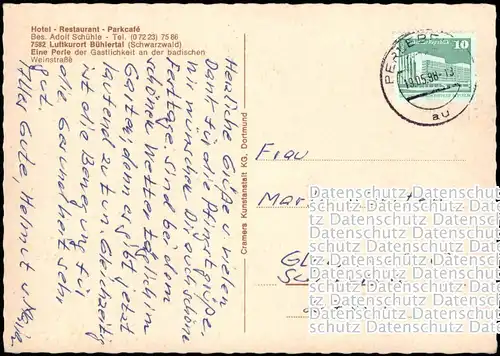 Hotel - Restaurant - Parkcafé
Bes. Adolf Schühle - Tel. (07223) 7586
7582 Luftkurort Bühlertal (Schwarzwald)
Eine Perle der Gastlichkeit an der badischen
Weinstraße
Herzliche Grüße u. vielen
Dank für die Pfingstgrüße,
Wir wünschen Dir auch schöne
Festtage, sind bei dem
schönen Wetter täglich im
Garten, denn es gibt jetzt
laufend zu tun. Gleichzeitig
ist die Bewegung für
die Gesundheit sehr
gut.
Alles Gute, Helmut u. Maria.
Cramers Kunstanstalt KG, Dortmund
10
19.05.98
au
Frau
Mar
Datenschutz Datenschutz
tz Datenschutz Datenschutz
tz Datenschutz Datenschutz
tz Datenschutz Datenschutz
tz Datenschutz Datenschutz
tz Datenschutz Datenschutz
tz Datenschutz Datenschutz